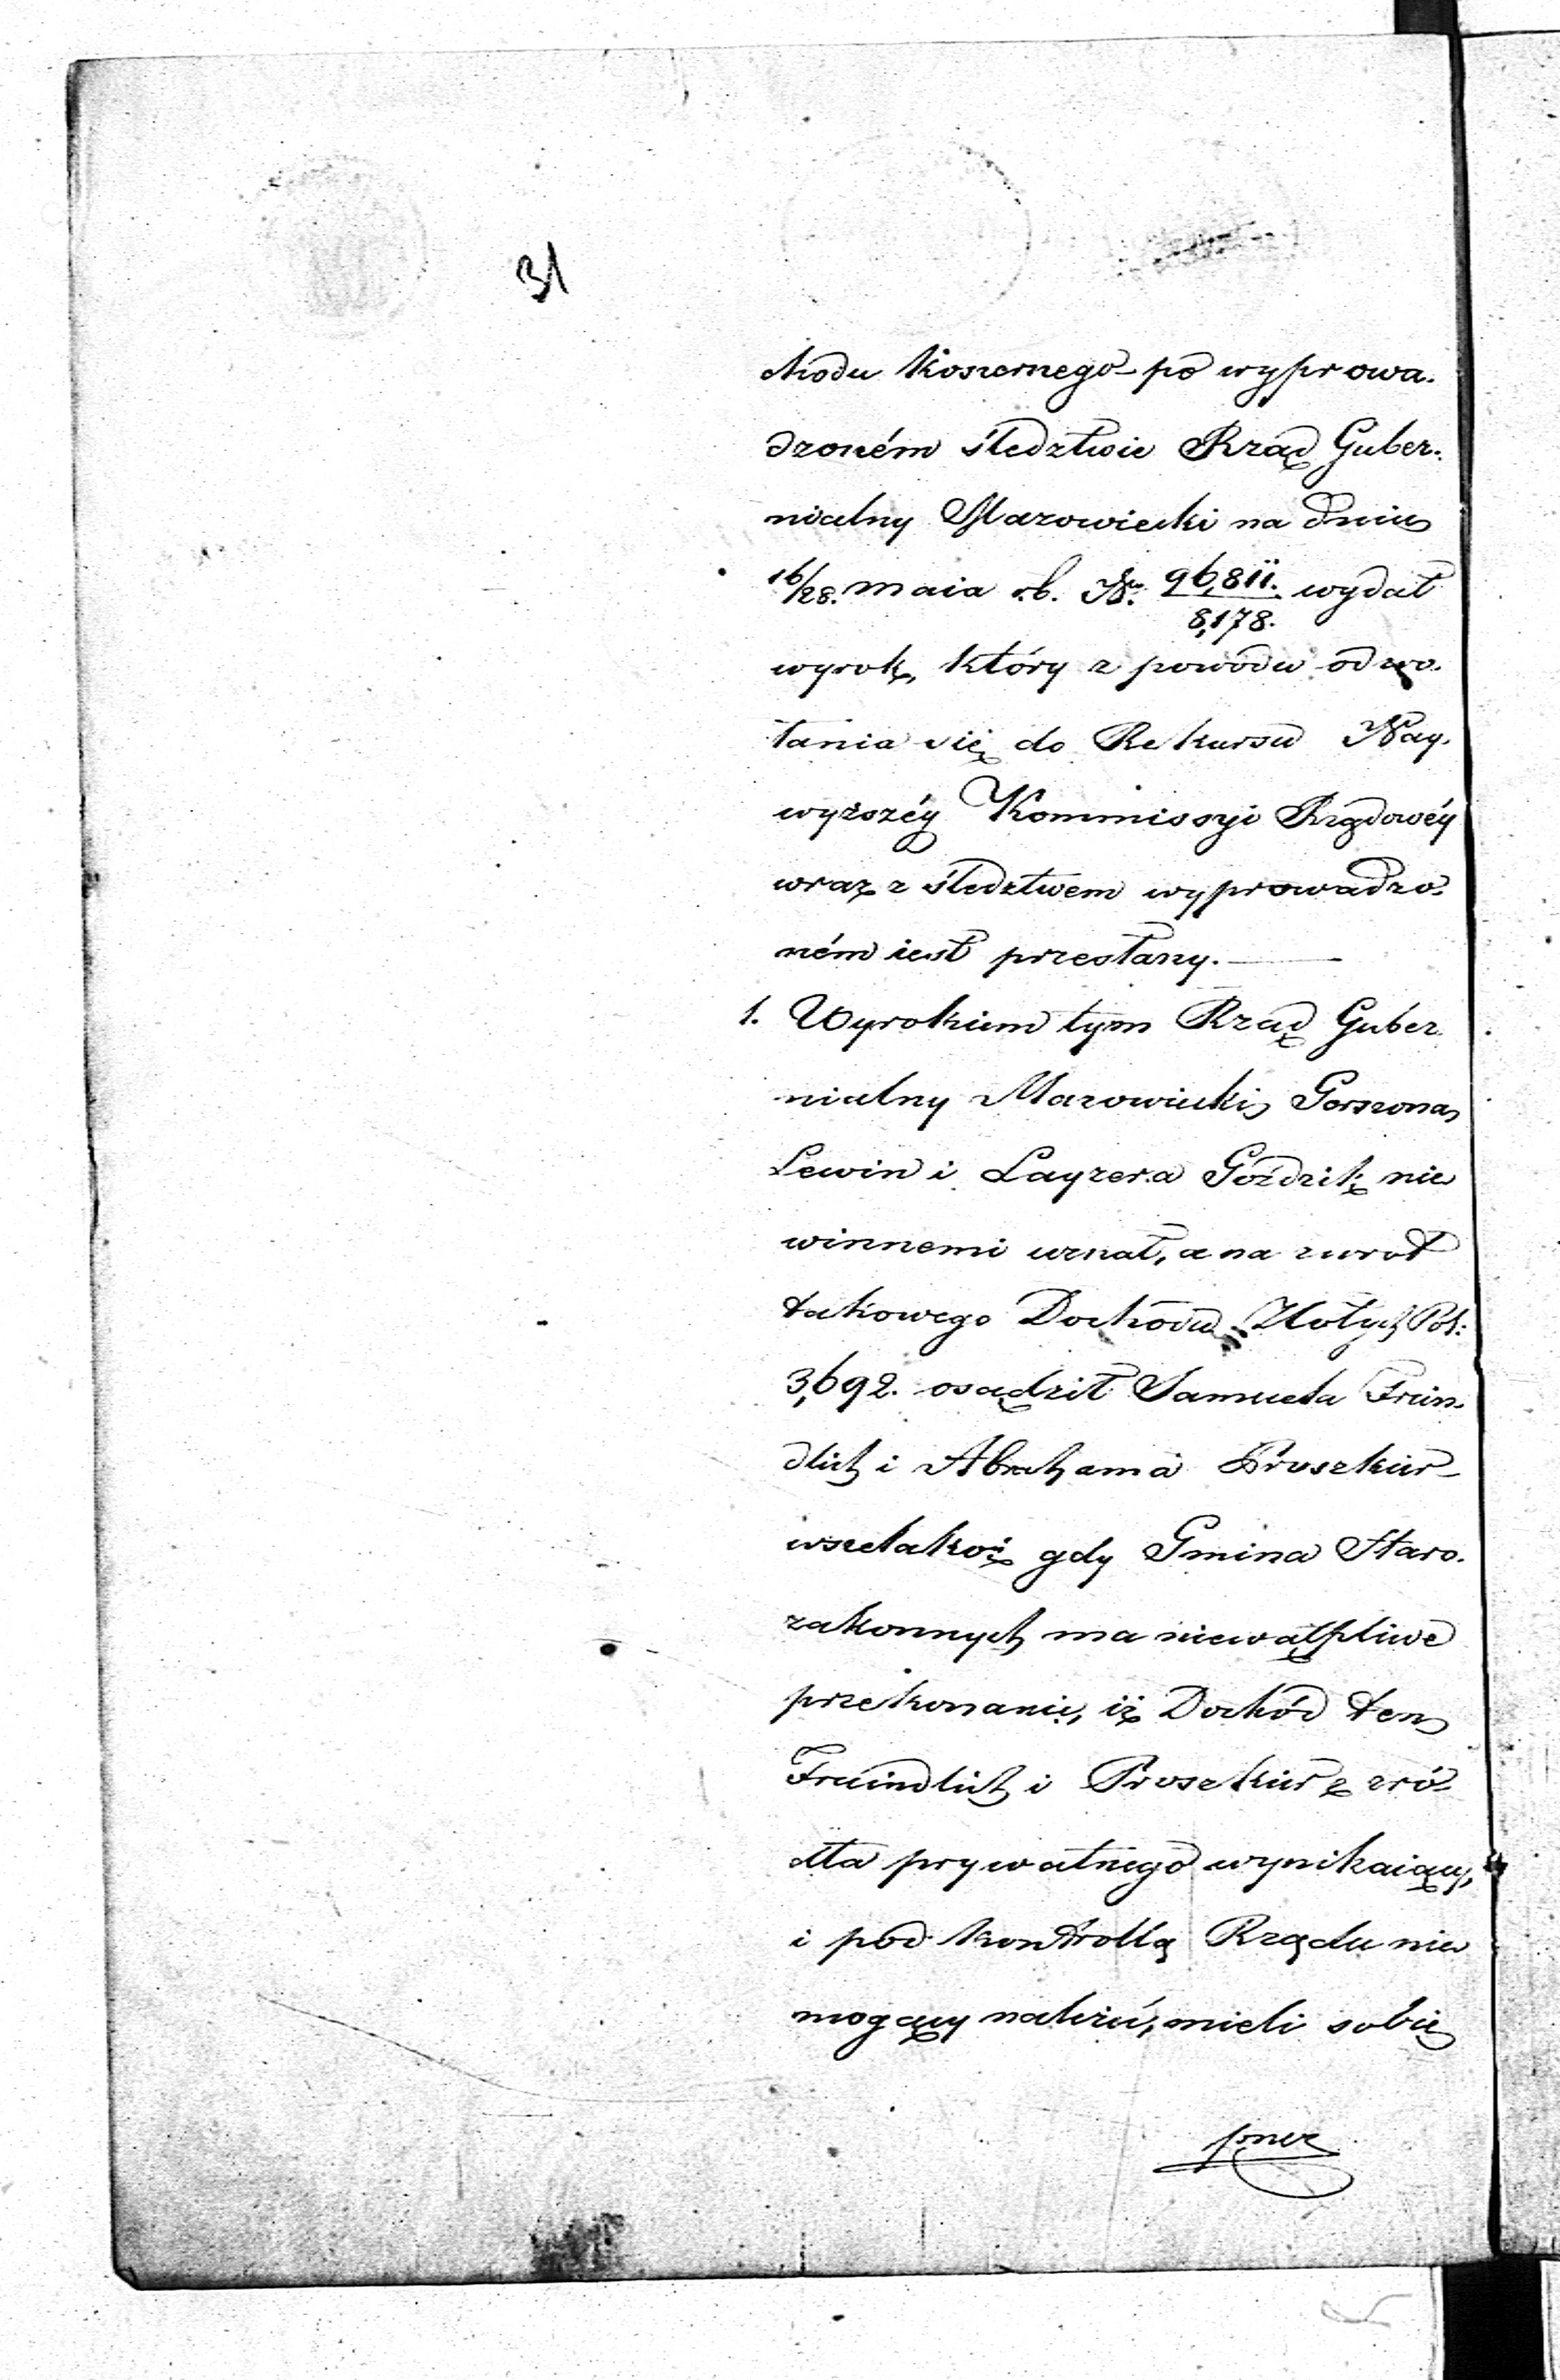 31
chodu koszernego po wyprowa-
dzoném śledztwie Rząd Guber-
nialny Mazowiecki na dniu
16/28. maia r.b. Nr. 96,811./8,178. wydał
wyrok, który z powodu odwo-
łania się do Rekursu Nay-
wyższéy Kommissyi Rządowéy
wraz z śledztwem wyprowadzo-
ném iest przesłany.
1. Wyrokiem tym Rząd Guber
nialny Mazowiecki Gerszona
Lewin i Layzera Goździk nie
winnemi uznał, a na zwrot
takowego Dochodu Złotych Pol:
3,692. osądził Samuela Frein-
dlich i Abrahama Proszkier
wszelakoż gdy Gmina Staro-
zakonnych ma niewątpliwe
przekonanie, iż Dochód ten
Freindlich i Proszkier z zró-
dła prywatnego wynikaiący,
i pod kontrollą Rządu nie
mogący należeć, mieli sobie